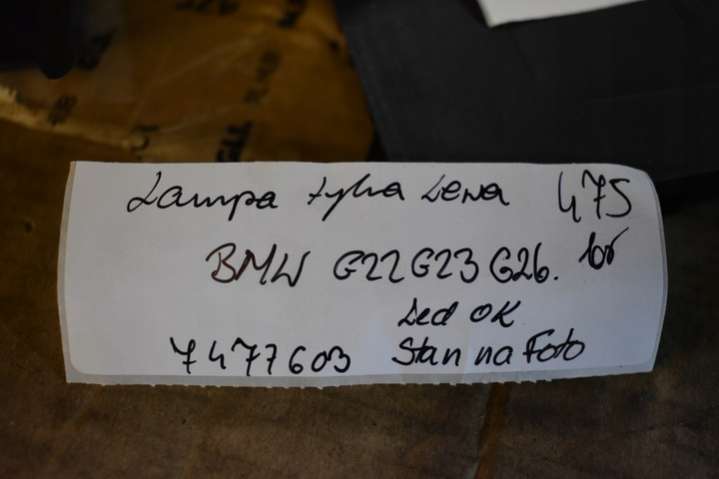 Lampa tylna Lewa 475
BMW G22 G23 G26.
Led OK
7477603 Stan na Foto